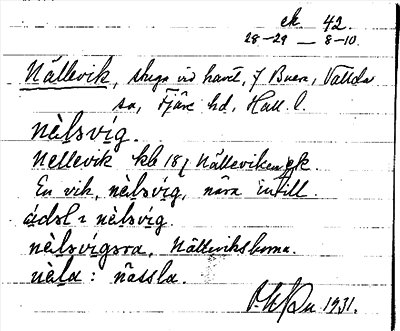 ek 42.
28-29 — 8-10.
Nällevik, stuga vid havet, f Buera, Vallda
sn, Fjäre hd, Hall. l.
nèlsvíg.
Nellevik kb 18 Nälleviken gk
En vik, nèlsvíg, nära intill.
ádsl = nèlsvíg
nèlsvígsra, Nälleviksborna.
nèla : nässla.
1931.